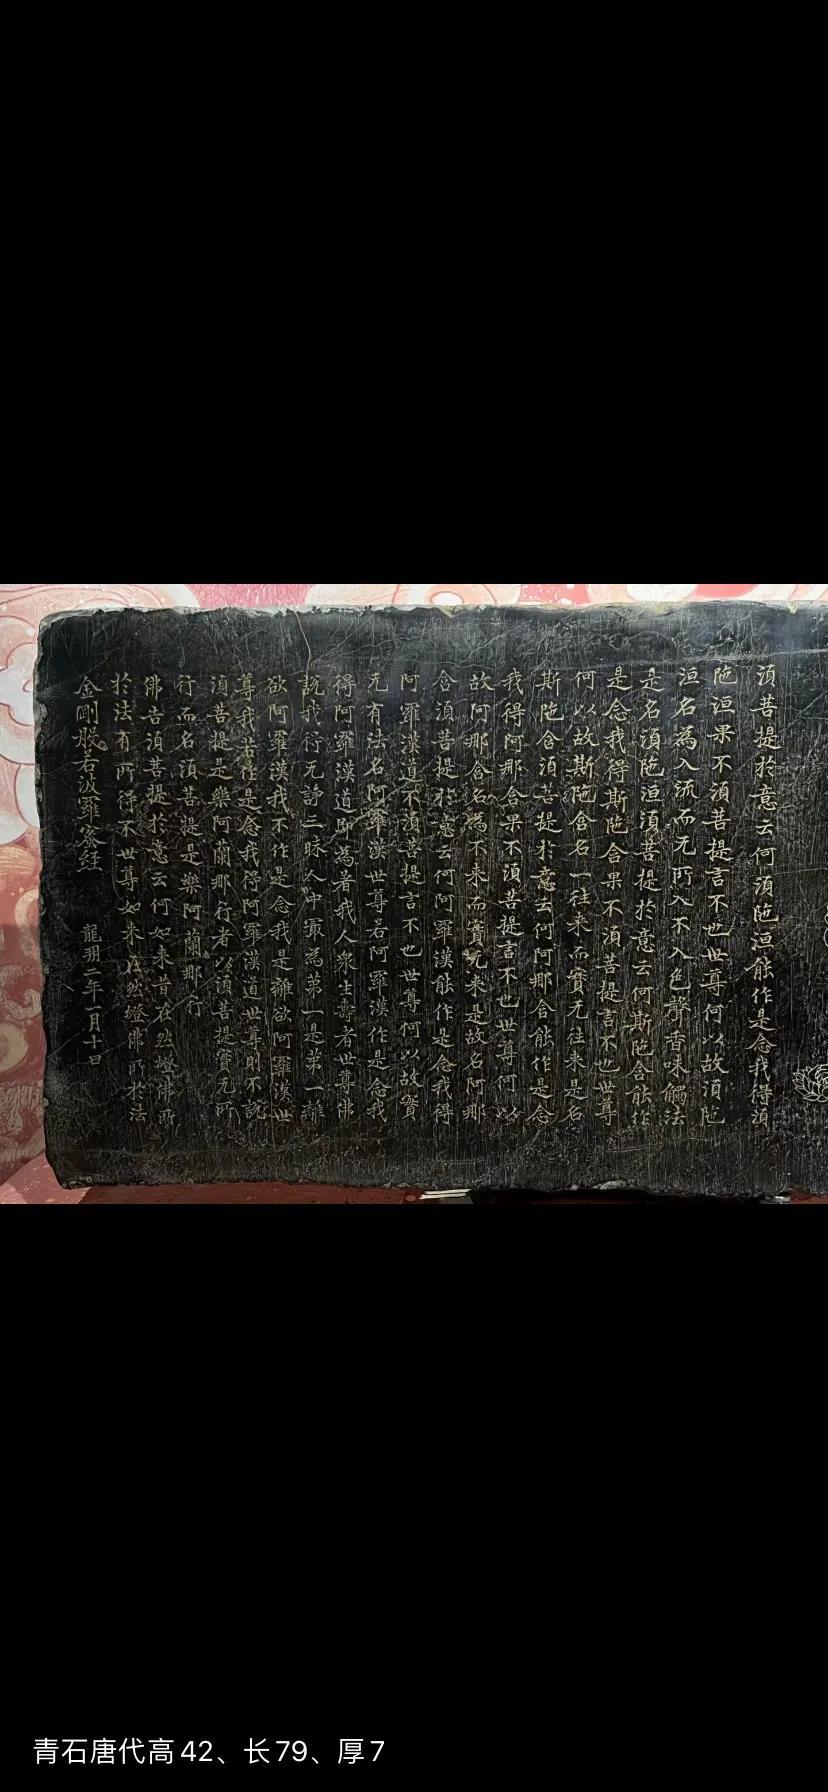 湏菩提於意云何湏陁洹能作是念我得湏
陁洹果不湏菩提言不也世尊何以故湏陁
洹名為入流而无所入不入色聲香味觸法
是名湏陁洹湏菩提於意云何斯陁含能作
是念我得斯陁含果不湏菩提言不也世尊
何以故斯陁含名一往来而實无往来是名
斯陁含湏菩提於意云何阿那含能作是念
我得阿那含果不湏菩提言不也世尊何以
故阿那含名為不来而實无来是故名阿那
含湏菩提於意云何阿羅漢能作是念我得
阿羅漢道不湏菩提言不也世尊何以故實
无有法名阿羅漢世尊若阿羅漢作是念我
得阿羅漢道即為著我人衆生壽者世尊佛
說我行无諍三昧人中冣為第一是第一離
欲阿羅漢我不作是念我是離欲阿羅漢世
尊我若作是念我得阿羅漢道世尊則不說
湏菩提是樂阿蘭那行者以湏菩提實无所
行而名湏菩提是樂阿蘭那行
佛告湏菩提於意云何如来昔在然燈佛所
於法有所得不世尊如来在然燈佛所於法
金剛般若波羅蜜經 龍朔二年一月十日
青石唐代高42、长79、厚7